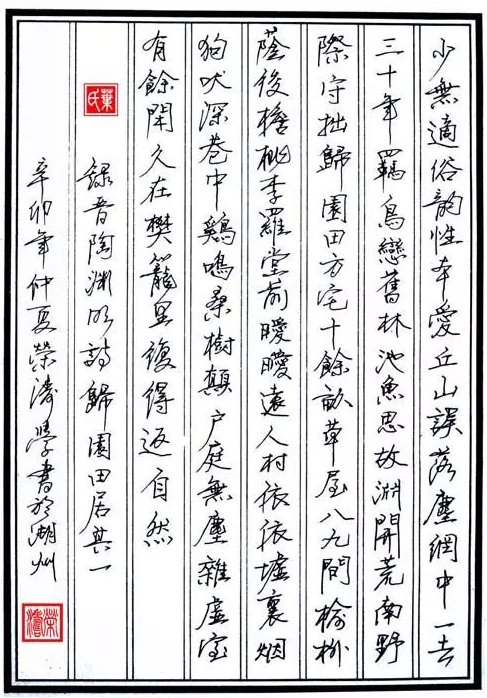 少無適俗韵性本愛丘山誤落塵網中一去
三十年羈鳥戀舊林池魚思故淵開荒南野
際守拙歸園田方宅十餘畝草屋八九間榆柳
蔭後檐桃李羅堂前曖曖遠人村依依墟裏烟
狗吠深巷中鷄鳴桑樹顛户庭無塵雜虛室
有餘閑久在樊籠里復得返自然
葉氏
錄晉陶渊明詩歸園田居其一
辛卯年仲夏榮濤學書於湖州
榮濤